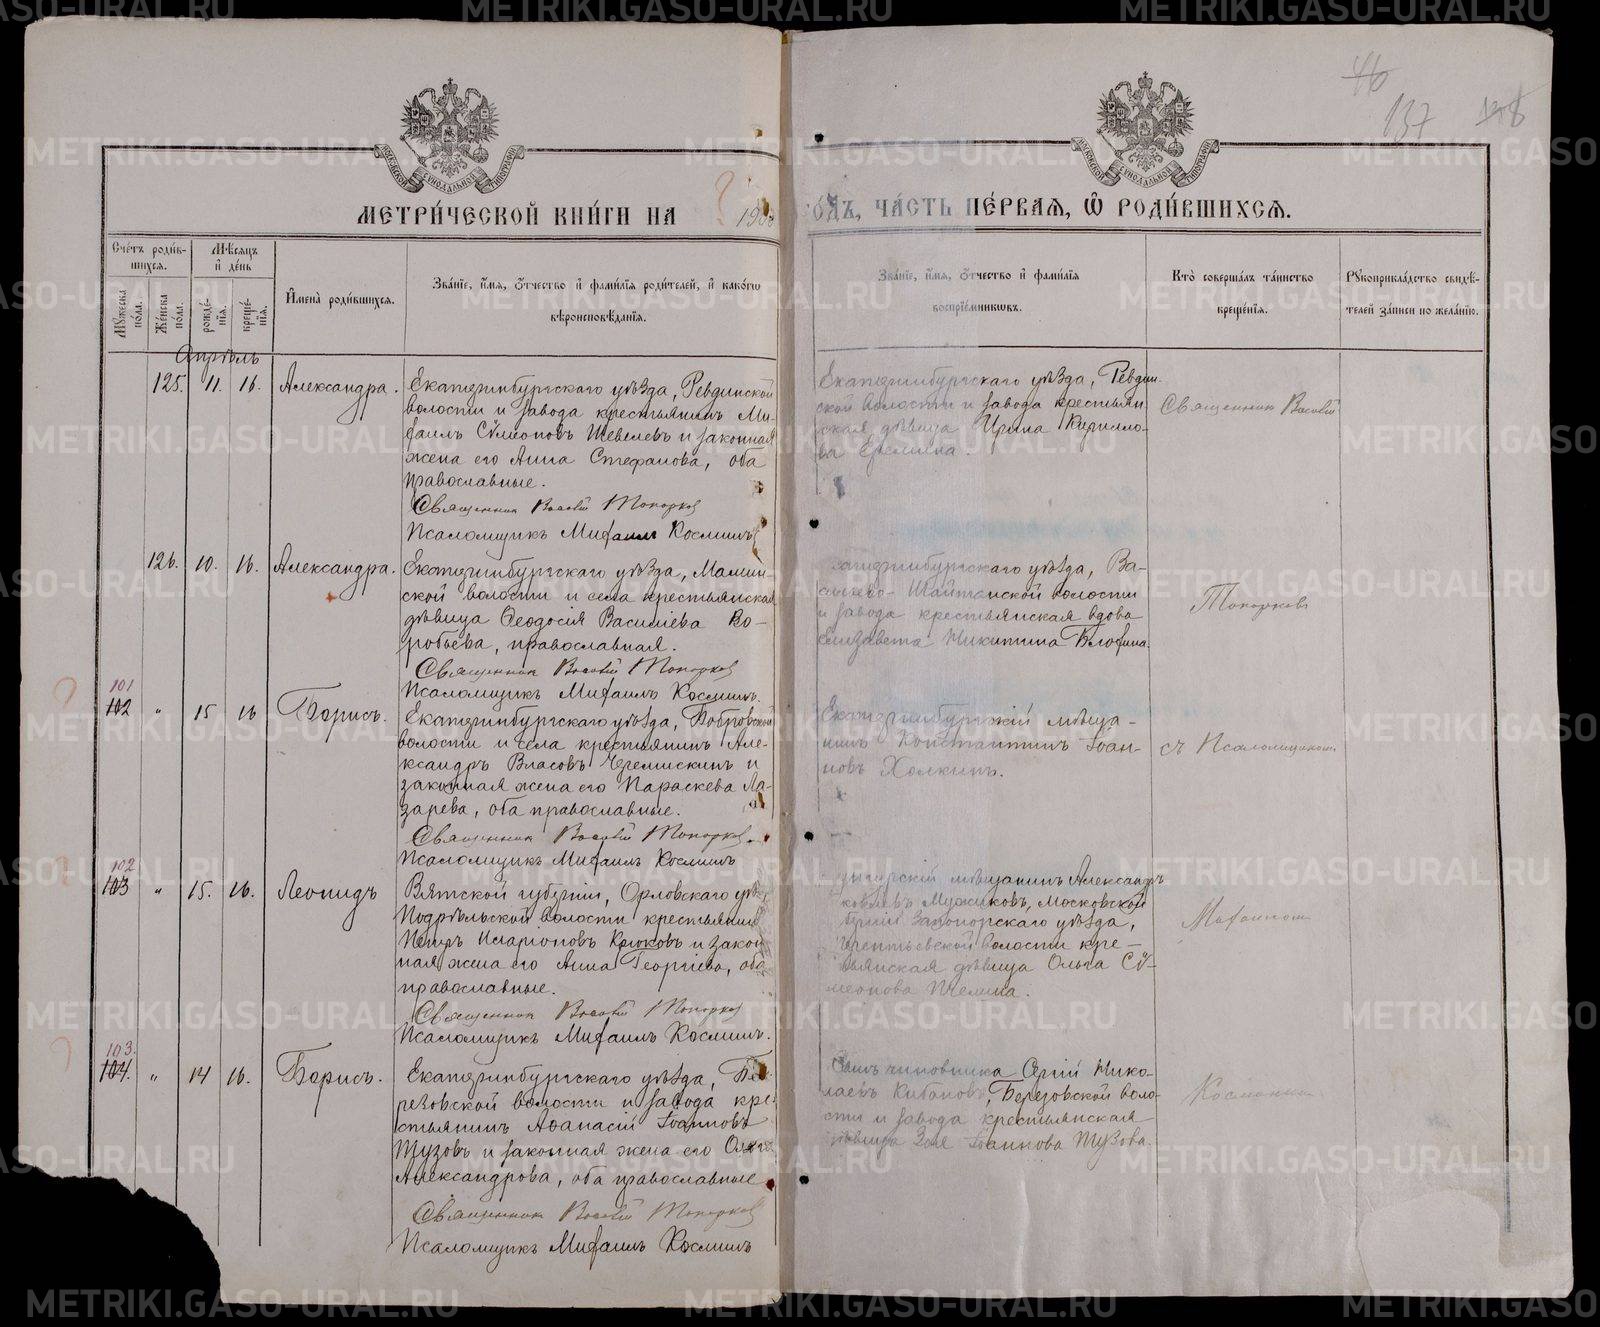 46
137
МЕТРИ́ЧЕСКОЙ КНИ́ГИ НА
190
ЧА́СТЬ ПЕ́РВАЯ, Ѡ РОДИ́ВШИХСЯ.
Сче́тъ роди́в-
шихся.
Мѣсяцъ
и де́нь
Му́жеска по́ла.
Же́нска по́ла.
рожде́-
нїя.
креще́-
нїя.
Имена̀ роди́вшихся.
Зва́нїе, и́мя, о́тчество и фами́лїя роди́телей, и како́гѡ
вѣроисповѣ́данїя.
Зва́нїе, и́мя, о́тчество и фами́лїя
воспрїе́мникѡвъ.
Кто̀ соверша́лъ та́инство
креще́нїя.
Рукоприкла́дство свидѣ́-
телей за́писи по жела́нїю.
Апрѣль
125. 11. 16. Александра.
Екатеринбургскаго уѣзда, Ревдинской
волости и завода крестьянинъ Ми-
хаилъ Сѵмеоновъ Шевелевъ и законная
жена его Анна Стефанова, оба
православные.
Священник Топорков
Псаломщикъ Михаилъ Косминъ
Екатеринбургскаго уѣзда, Ревдин-
ской волости и завода крестьян
ская дѣвица Ирина Кирилло-
ва Еремина.
Священник
126. 10. 16. Александра.
Екатеринбургскаго уѣзда, Мамин-
ской волости и села крестьянская
дѣвица Ѳеодосія Василіева Во-
робьева, православная.
Священник Топорков
Псаломщикъ Михаилъ Косминъ.
катеринбургскаго уѣзда, Ва-
сильево-Шайтанской волости
и завода крестьянская вдова
Елизавета Никитина
Топорковъ
101
102 " 15 16 Борисъ.
Екатеринбургскаго уѣзда, Бобровской
волости и села крестьянинъ Але-
ксандръ Власовъ Черемискинъ и
законная жена его Параскева Ла-
зарева, оба православные.
Священник Топорков
Псаломщикъ Михаилъ Косминъ
Екатеринбургскій мѣща-
нинъ Константинъ Іоан-
новъ Холкинъ.
съ Псаломщикомъ
102
103 " 15. 16. Леонидъ
Вятской губерніи, Орловскаго уѣз
Подрѣльской волости крестьянинъ
Петръ Иларіоновъ Крюковъ и закон
ная жена его Анна Георгіева, оба
православные.
Священник Топорков
Псаломщикъ Михаилъ Косминъ.
мѣщанинъ Александръ
Мужиковъ, Московской
берніи уѣзда,
волости кре-
тьянская дѣвица Ольга Сѵ-
меонова
Михаиломъ
103.
104. " 14 16. Борисъ.
Екатеринбургскаго уѣзда, Бе
резовской волости и завода кре
стьянинъ Аѳанасій Іоанновъ
Шузовъ и законная жена его Ольга
Александрова, оба православные
Священник Топорков
Псаломщикъ Михаилъ Косминъ
Сынъ чиновника Сергій Нико-
лаевъ Березовской воло-
сти и завода крестьянская
дѣвица Зоя Іоаннова Шузова.
Косминым
METRIKI.GASO-URAL.RU